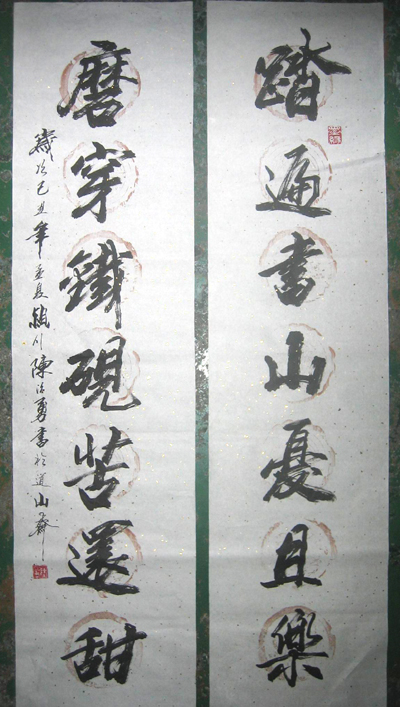 踏遍書山憂且樂
磨穿鐵硯苦還甜
歲次己丑年孟夏銅川陳法勇書於道山齋